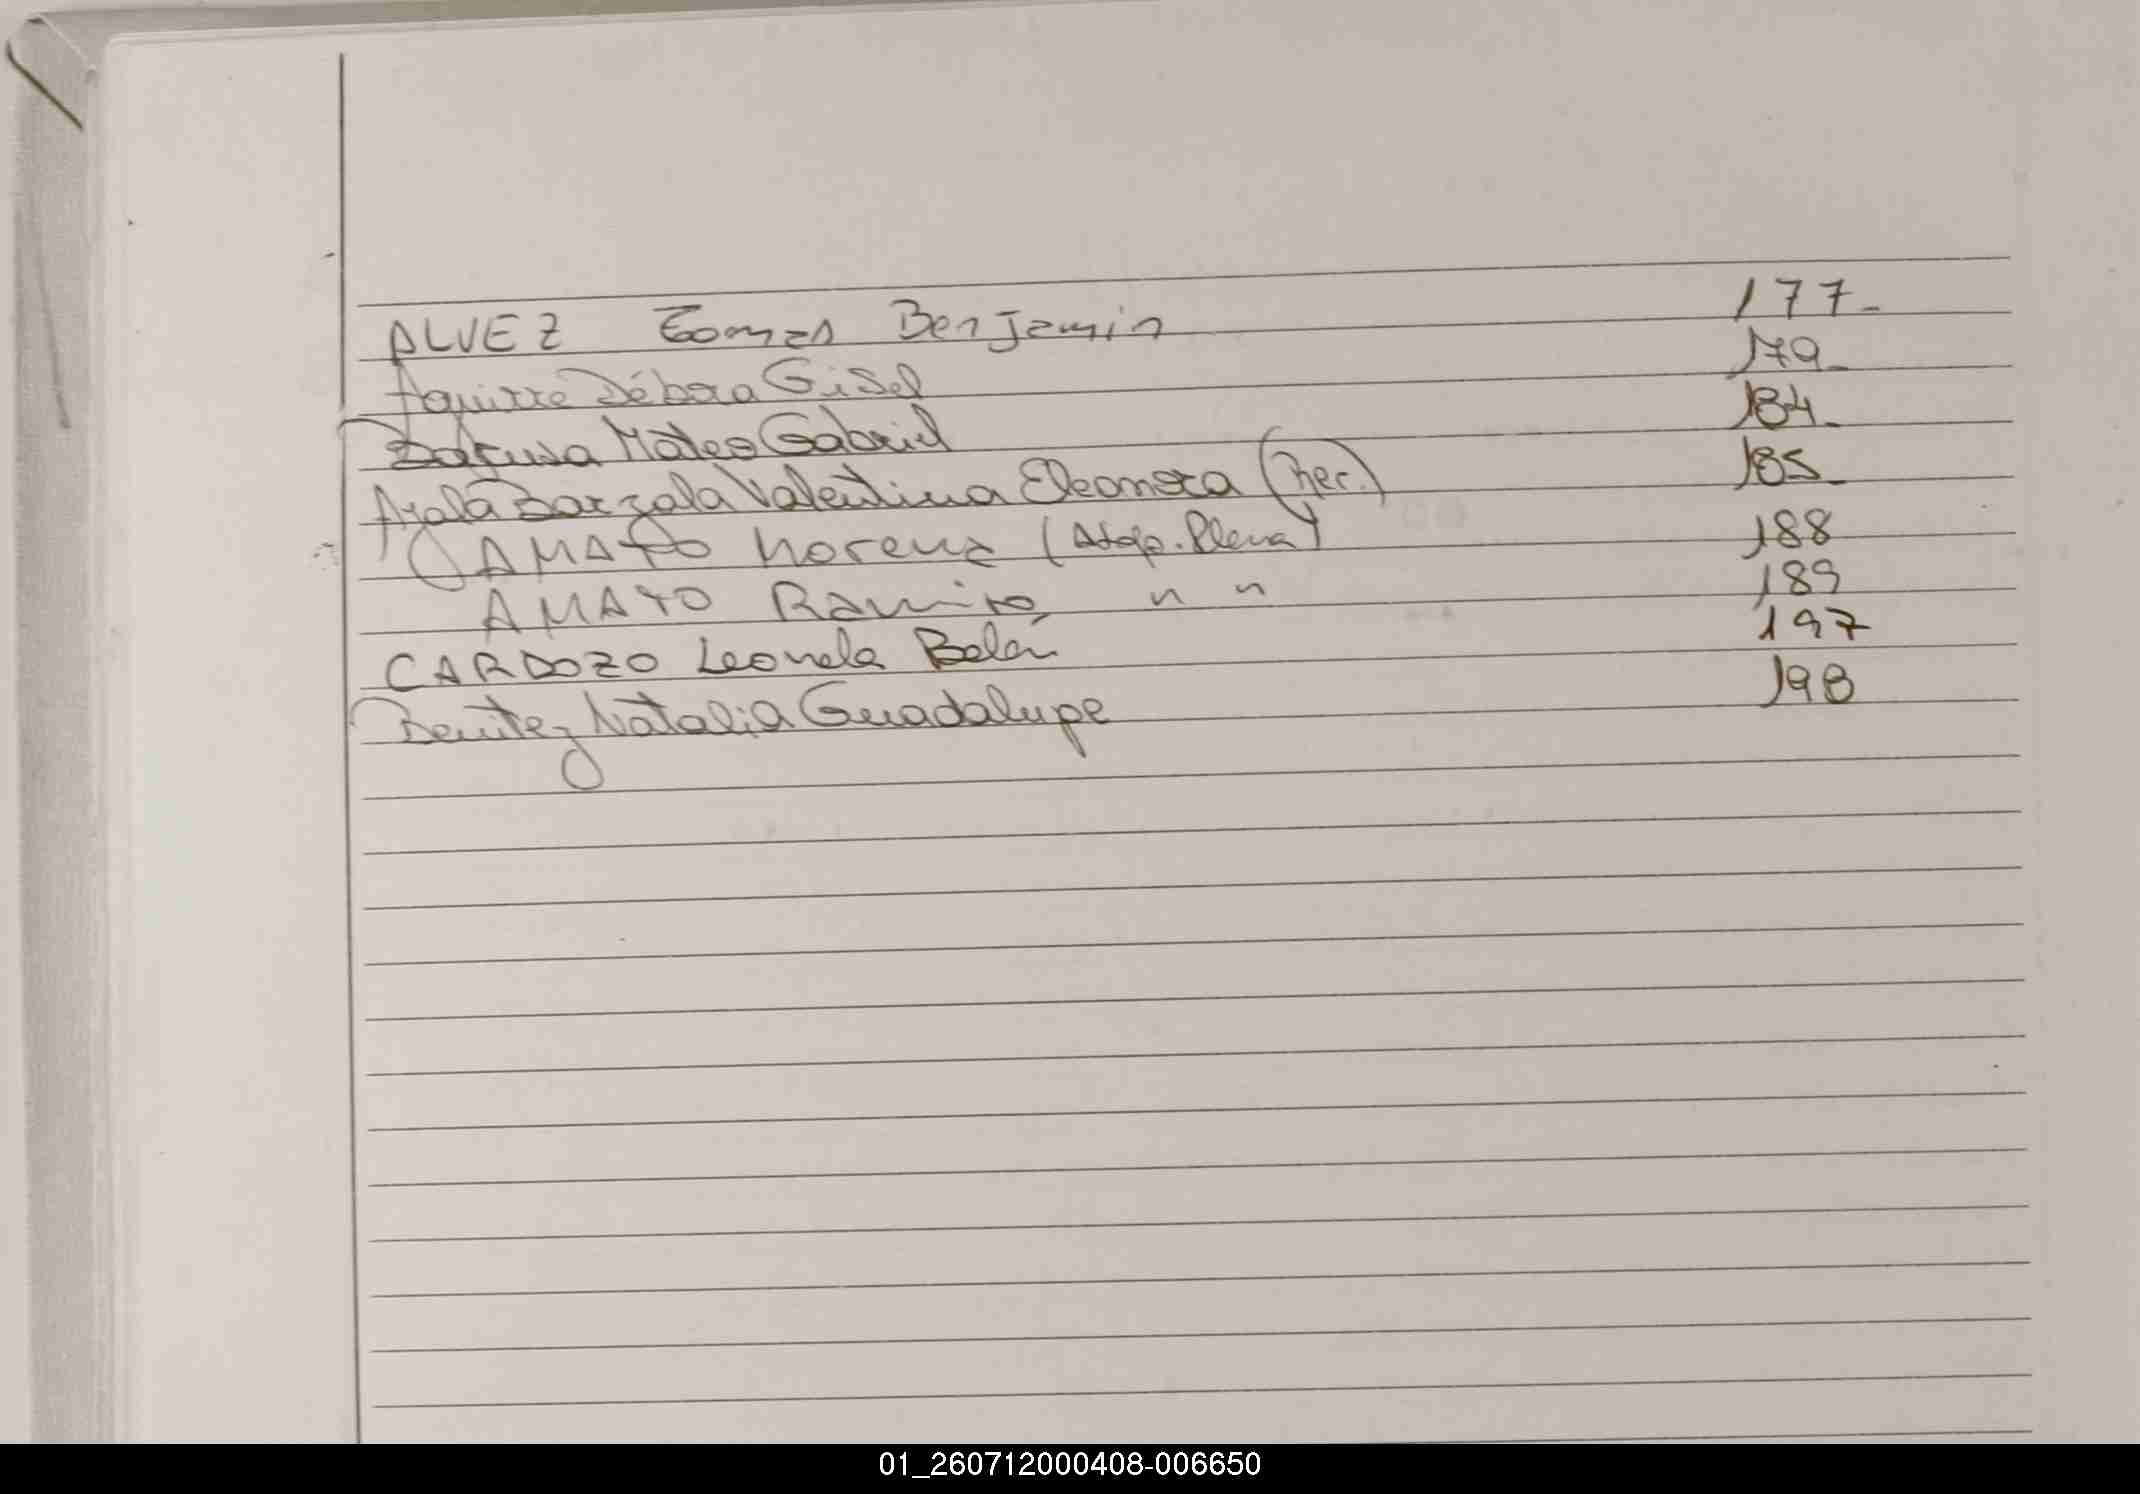 ALVEZ Tomas Benjamin 177-
Aguirre Débora Gisel 179-
Mateo Gabriel 184-
Ayala Barzala Valentina Eleonora (Rec.) 185-
AMATO Morena (Adop. Plena) 188
AMATO Ramiro " " 189
CARDOZO Leonela Belén 197
Benitez Natalia Guadalupe 198
01_260712000408-006650